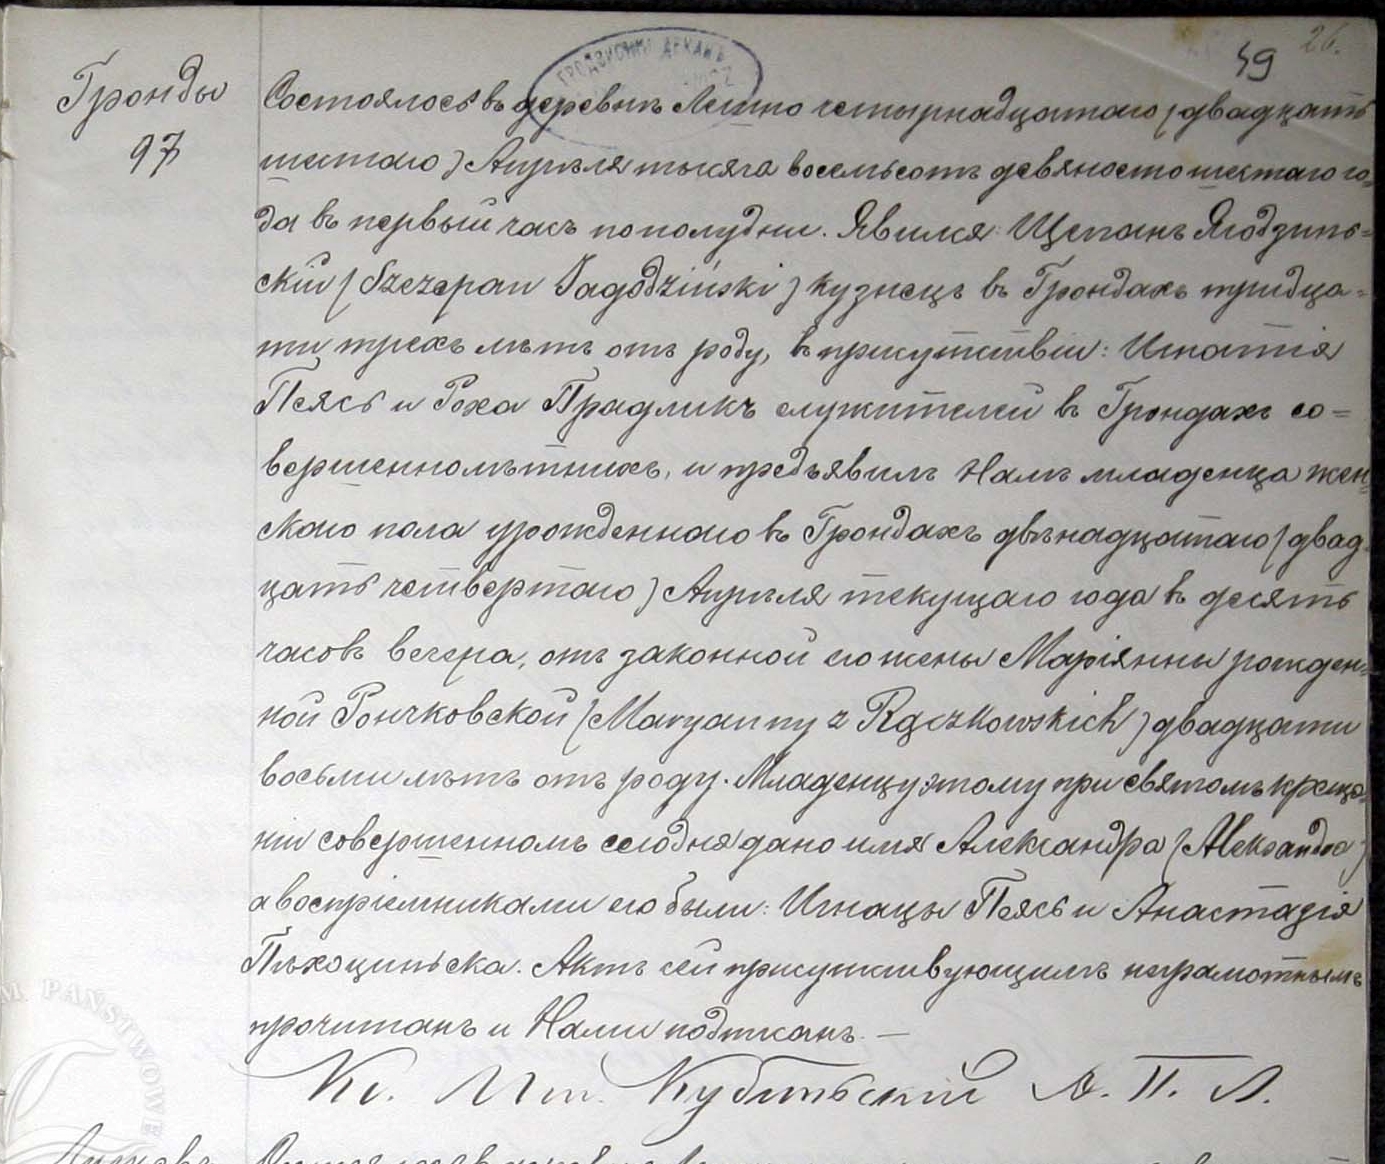 49 26.
Гронды
97
ГРОДЗИСКИЙ ДЕКАНЪ
Состоялось въ деревнѣ Лешно четырнадцатаго (двадцать
шестаго) Апрѣля тысяча восемьсотъ девяносто шестаго го=
да въ первый часъ пополудни. Явился: Щепанъ Ягодзинь=
скій (Szczepan Jagodziński) кузнецъ въ Грондахъ тридца=
ти трехъ лѣтъ отъ роду, въ присутствіи: Игнатія
Пеясъ и Роха Прадликъ служителей въ Грондахъ со=
вершеннолѣтнихъ, и предъявилъ Намъ младенца жен=
скаго пола урожденнаго въ Грондахъ двѣнадцатаго (двад=
цать четвертаго) Апрѣля текущаго года въ десять
часовъ вечера, отъ законной его жены Маріянны рожден=
ной Рончковской (Maryanny z Rączkowskich) двадцати
восьми лѣтъ отъ роду. Младенцу этому при святомъ креще=
ніи совершенномъ сегодня дано имя Александра (Aleksandra)
а воспріемниками его были: Игнацы Пеясъ и Анастазія
Пѣхоциньска. Актъ сей присутствующимъ неграмотнымъ
прочитанъ и Нами подписанъ. —
Кс. Кубильскій А. П. Л.
M PAŃSTWOWE